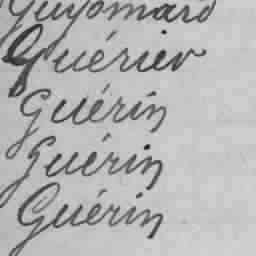 Guyomard
Guérier
Guérin
Guérin
Guérin